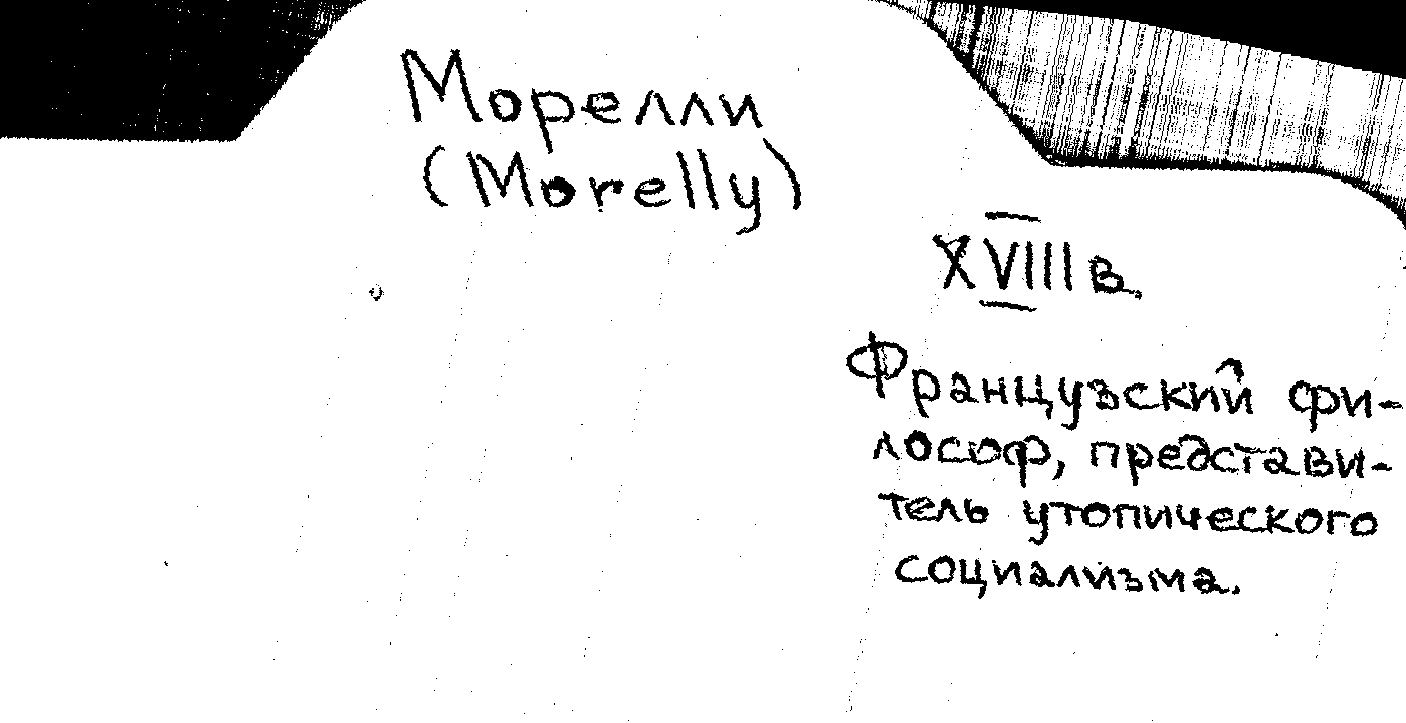 Морелли
(Morelly)
XVIII в.
Французский фи-
лософ, представи-
тель утопического
социализма.